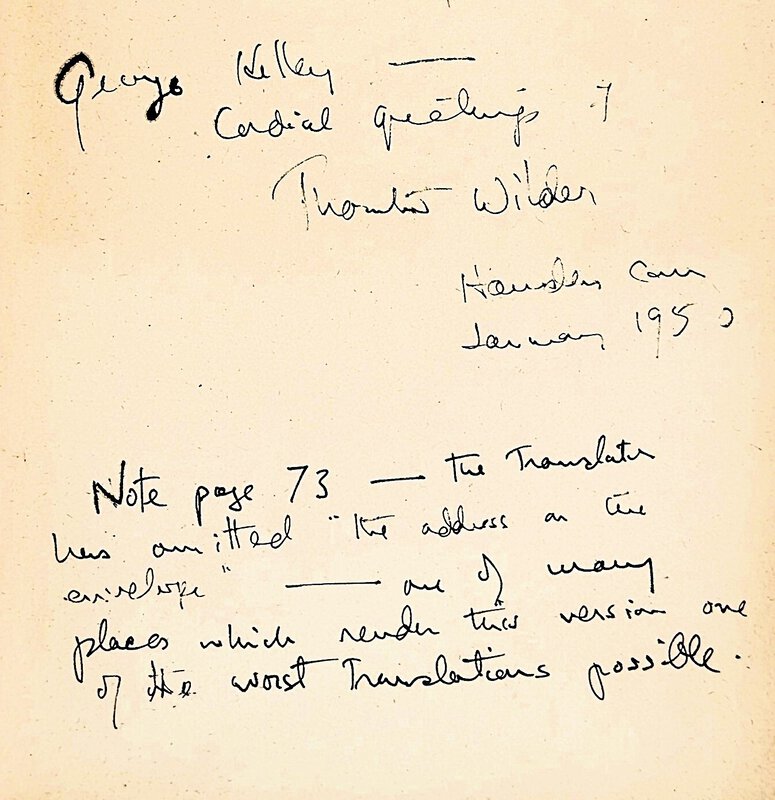 George Kelley —
Cordial greetings of
Thornton Wilder
Hamden Conn
January 1950
Note page 73 — the Translator
has omitted "the address on the
envelope" — one of many
places which render this version one
of the worst Translations possible.